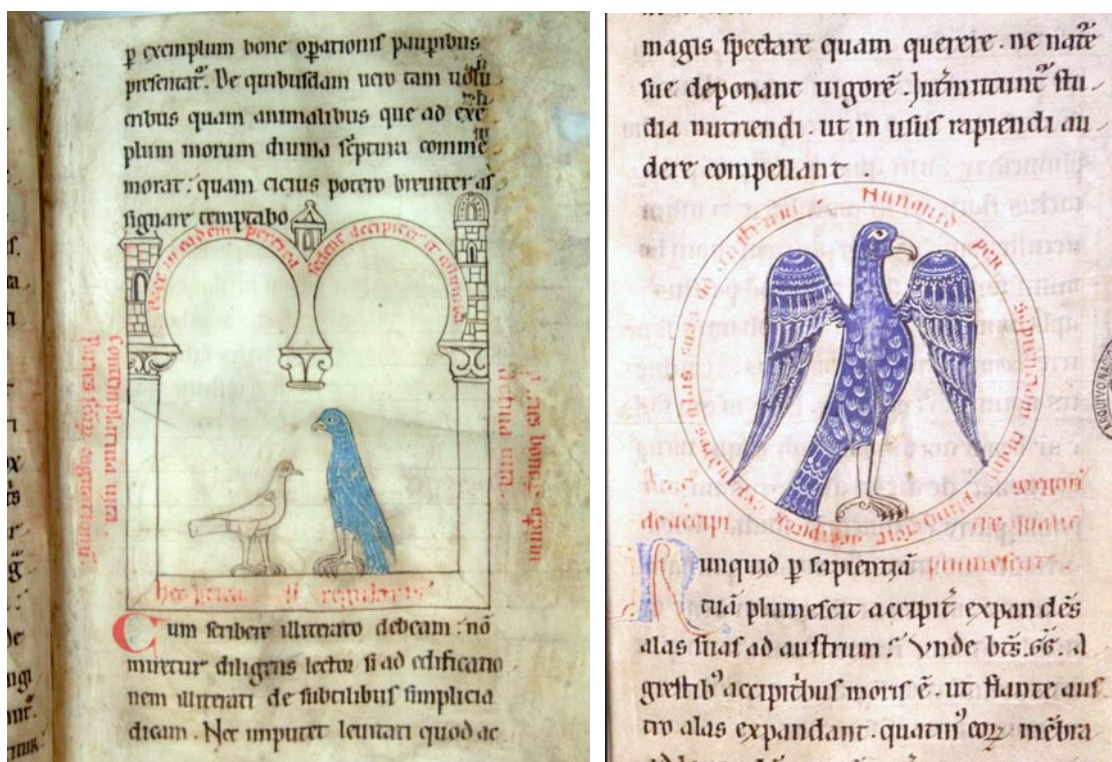 p exemplum bone opationis paupibus
presentat᷑. De quibusdam uero tam uolu
cribus quam animalibus que ad exe
plum morum diuina sc̄ptura comme
morat: quam cicius potero breuiter as
signare temptabo
Ecce in eadem pertica sedent accipiter et columba
Contemplatiua uita
Paries
paries boni
actiua uita.
hec ptica regularis
Cum scribere illiterato debeam: nō
miretur diligens lector si ad edificatio
nem illiterati de subtilibus simplicia
dicam. Nec imputet leuitati quod ac
magis spectare quam querere. ne nate
sue deponant uigorē. Int̄mittunt᷑ stu
dia nutriendi. ut in usus rapiendi au
dere compellant.
Nunquid per sapientiam tuam plumescit accipiter expandens alas suas ad austrum
de accipi tre qualit᷑
plumescat
Nunquid p sapientiā
tuā plumescit accipit̄ expandēs
alas suas ad austrum: Vnde bt̄s. GG. A
grestib᷒ accipit̄bus moris ē. ut flante aus
tro alas expandant. quatin᷒ eoꝝ mēbra